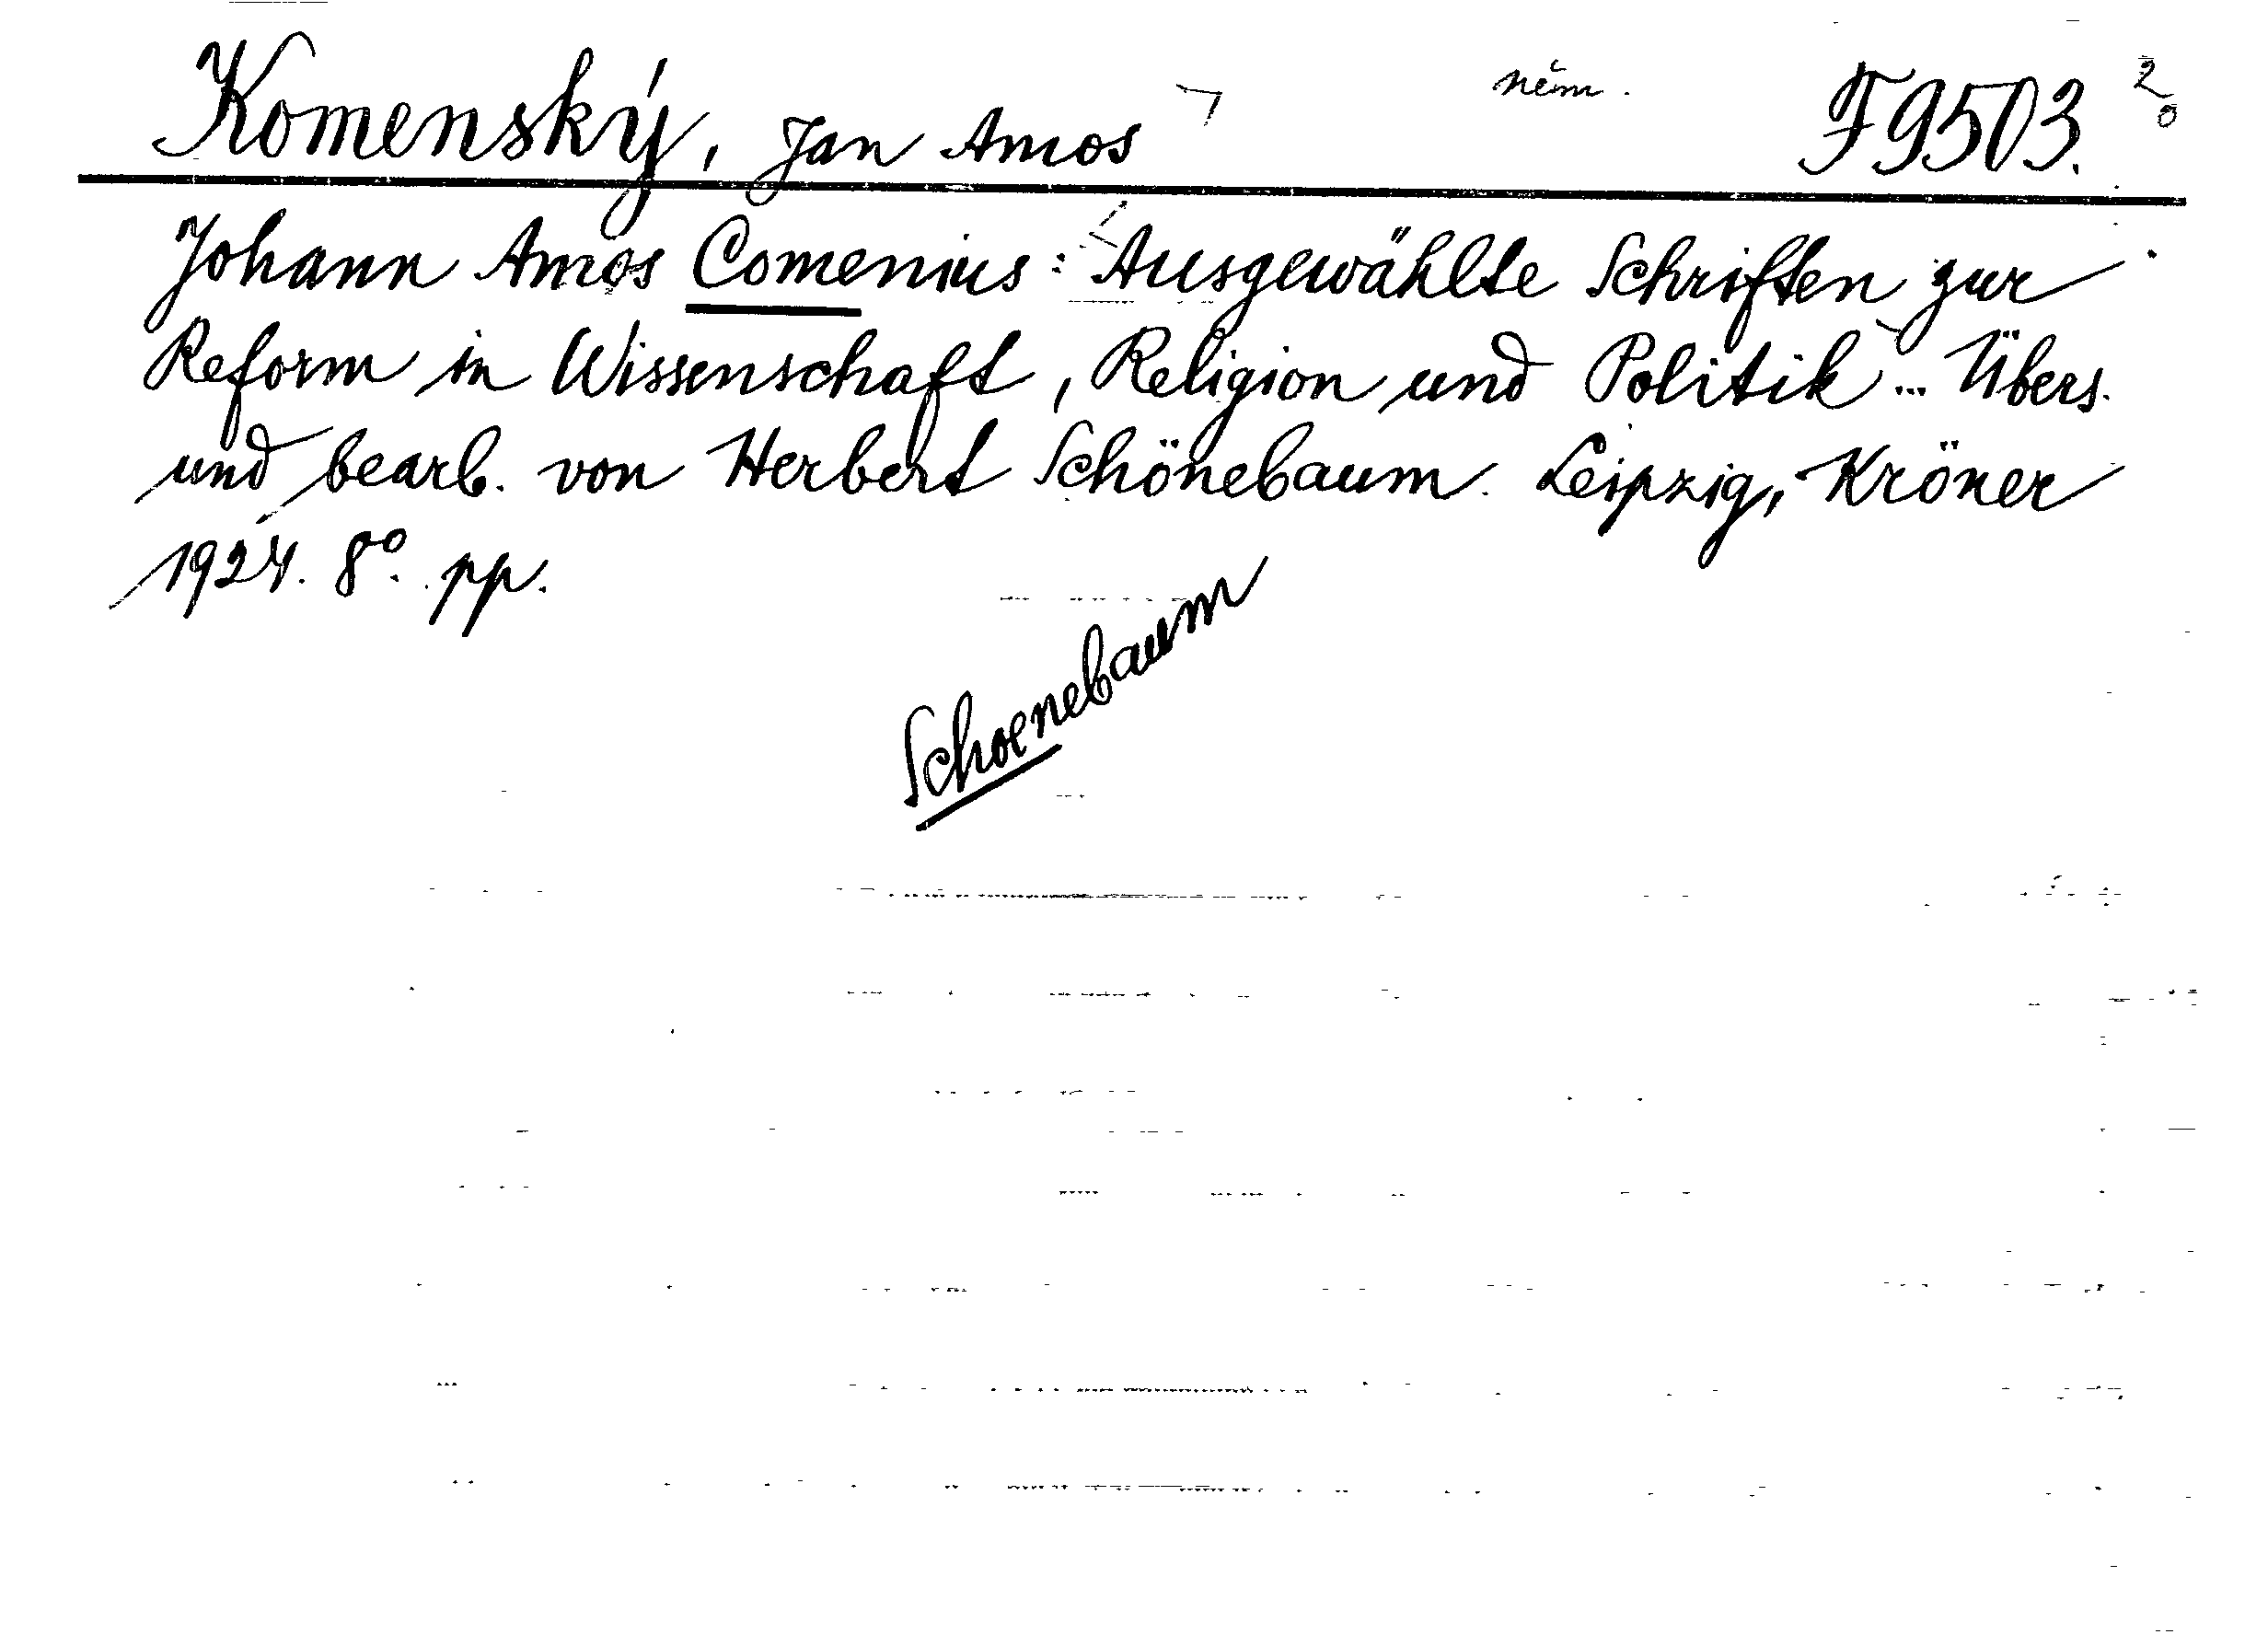 Komenský, Jan Amos ⌝ něm. F 9503. 2/0
Johann Amos Comenius: Ausgewählte Schriften zur
Reform in Wissenschaft, Religion und Politik ... Übers.
und bearb. von Herbert Schönebaum. Leipzig, Kröner
1924. 8°. pp.
Schoenebaum